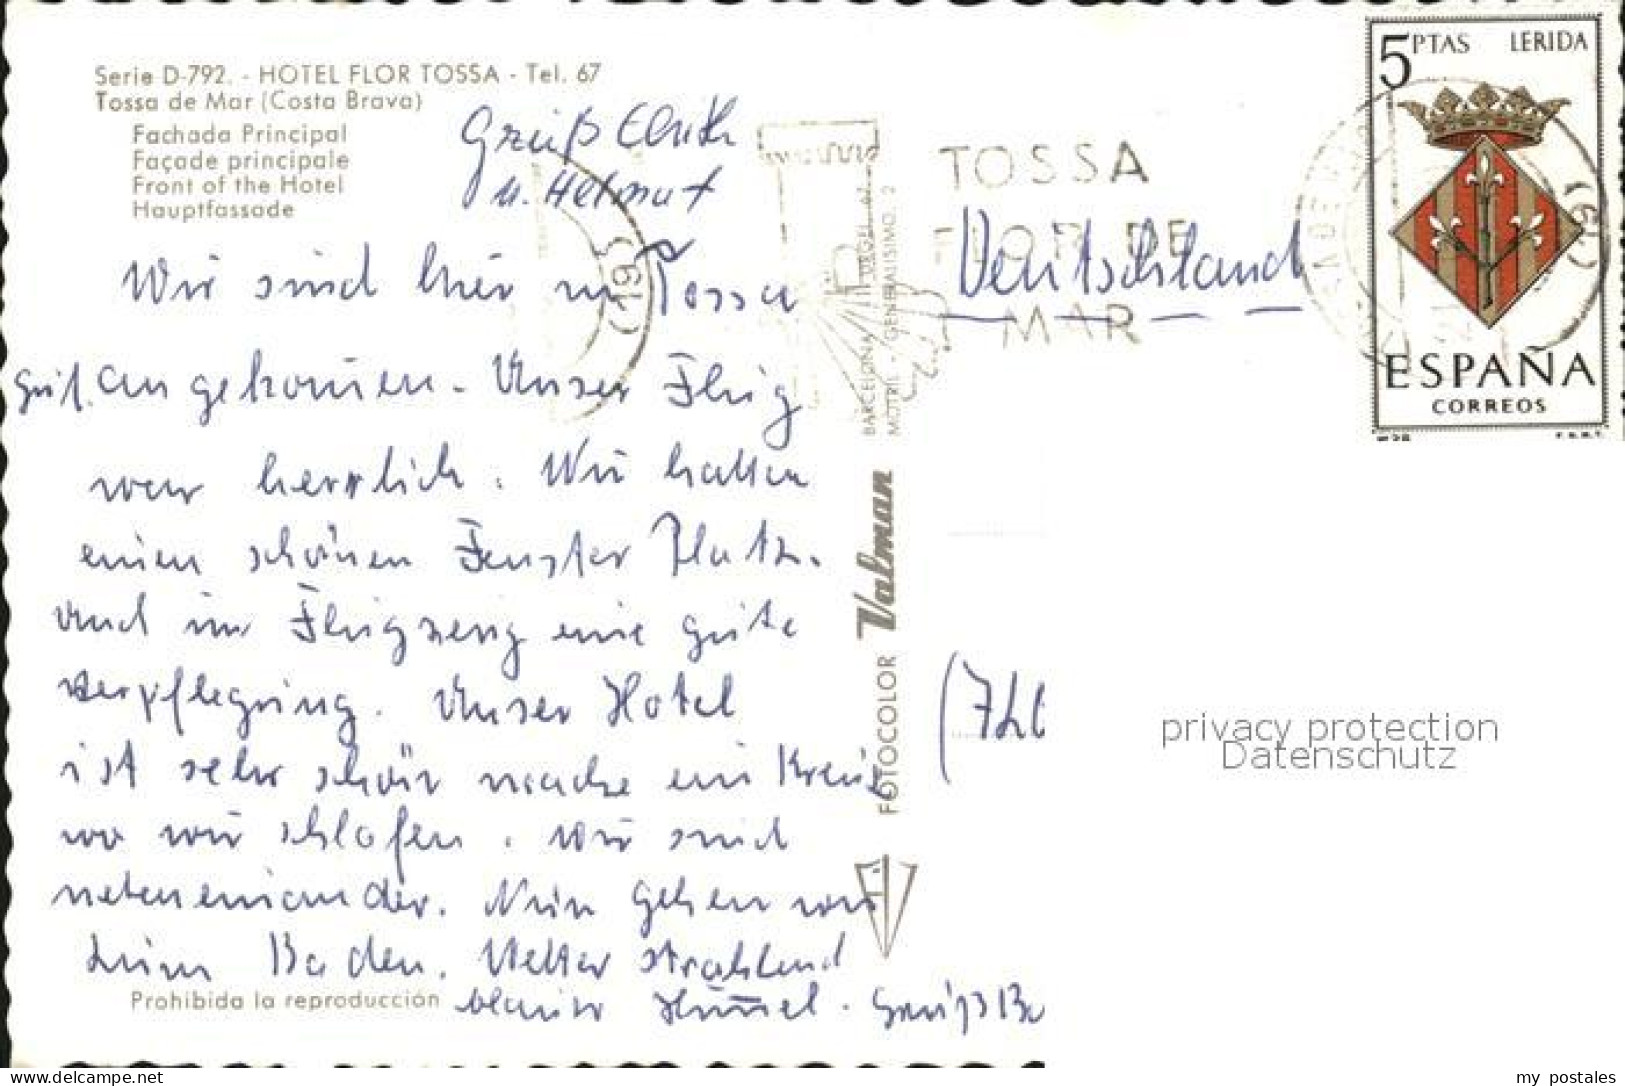 Serie D-792. - HOTEL FLOR TOSSA - Tel. 67
Tossa de Mar (Costa Brava)
Fachada Principal
Façade principale
Front of the Hotel
Hauptfassade
Gruß
u. Helmut
Wir sind hier in Tossa
gut angekommen. Unser Flug
war herrlich. Wir hatten
einen schönen Fenster Platz.
und im Flugzeug eine gute
verpflegung. Unser Hotel
ist sehr schön mache ein Kreuz
wo wir schlafen. Wir sind
nebeneinander. Nun gehen wir
zum Baden. Wetter strahlend
blauer Himmel. Gruß
Prohibida la reproducción
BARCELONA - URGEL, 42
MOTRIL - GENERALISIMO, 2
FOTOCOLOR Valman
TOSSA
FLOR DE
MAR
(19)
Deutschland
5 PTAS LERIDA
ESPAÑA
CORREOS
F.N.M.T.
(19)
privacy protection
Datenschutz
my_postales